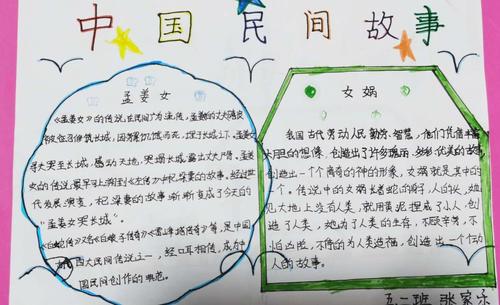 中国民间故事
孟姜女
《孟姜女》的传说,在民间广为流传,孟姜女的丈夫
被迫修长城,因劳累饥饿而死,埋于长城下。孟姜
寻夫哭至长城,感动天地,哭塌长城露出丈夫尸骨。孟姜
女的传说最早可上溯到《左传》中杞梁妻的故事,经过世
代发展、演变,杞梁妻的故事渐渐变成了今天的
“孟姜女哭长城”。
《白蛇传》又名《白娘子传奇》《雷峰塔传奇》等,是中国
四大民间传说之一,经口耳相传,成为中
国民间创作的典范。
女娲
我国古代劳动人民勤劳、智慧,他们凭借丰富
大胆的想像,创造出了许多瑰丽、多彩、优美的故事
创造出一个个离奇的神的形象,女娲就是其中的
一个。传说中的女娲长着蛇的身,人的头,她
见大地上没有人类,就用黄泥捏成了小人,创
造了人类,她为了人类的生存,不顾辛劳,不
怕凶险,不停的为人类造福,创造出一个个动
人的故事。
五二班 张家